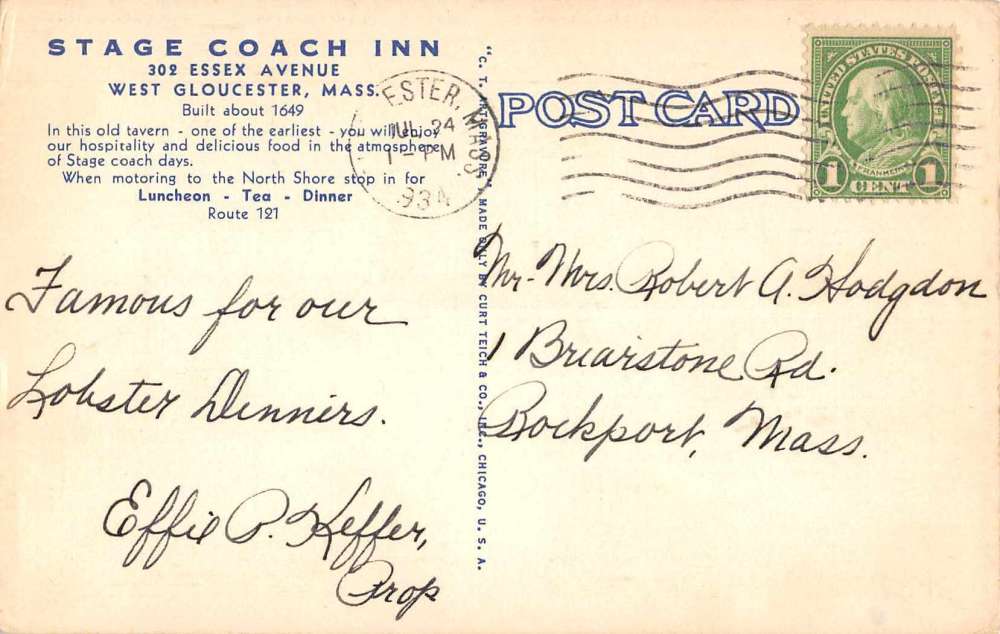 STAGE COACH INN
302 ESSEX AVENUE
WEST GLOUCESTER, MASS.
Built about 1649
In this old tavern - one of the earliest - you will enjoy
our hospitality and delicious food in the atmosphere
of Stage coach days.
When motoring to the North Shore stop in for
Luncheon - Tea - Dinner
Route 121
Famous for our
Lobster Dinners.
Effie P. Keffer,
Prop
"C. T. ART-GRAVORE," MADE ONLY BY CURT TEICH & CO., INC., CHICAGO, U. S. A.
ESTER, MASS.
JUL 24
1 - PM
934
POST CARD
UNITED STATES POSTAGE
FRANKLIN
1 CENT 1
Mr. Mrs. Robert A. Hodgdon
1 Briarstone Rd.
Rockport, Mass.